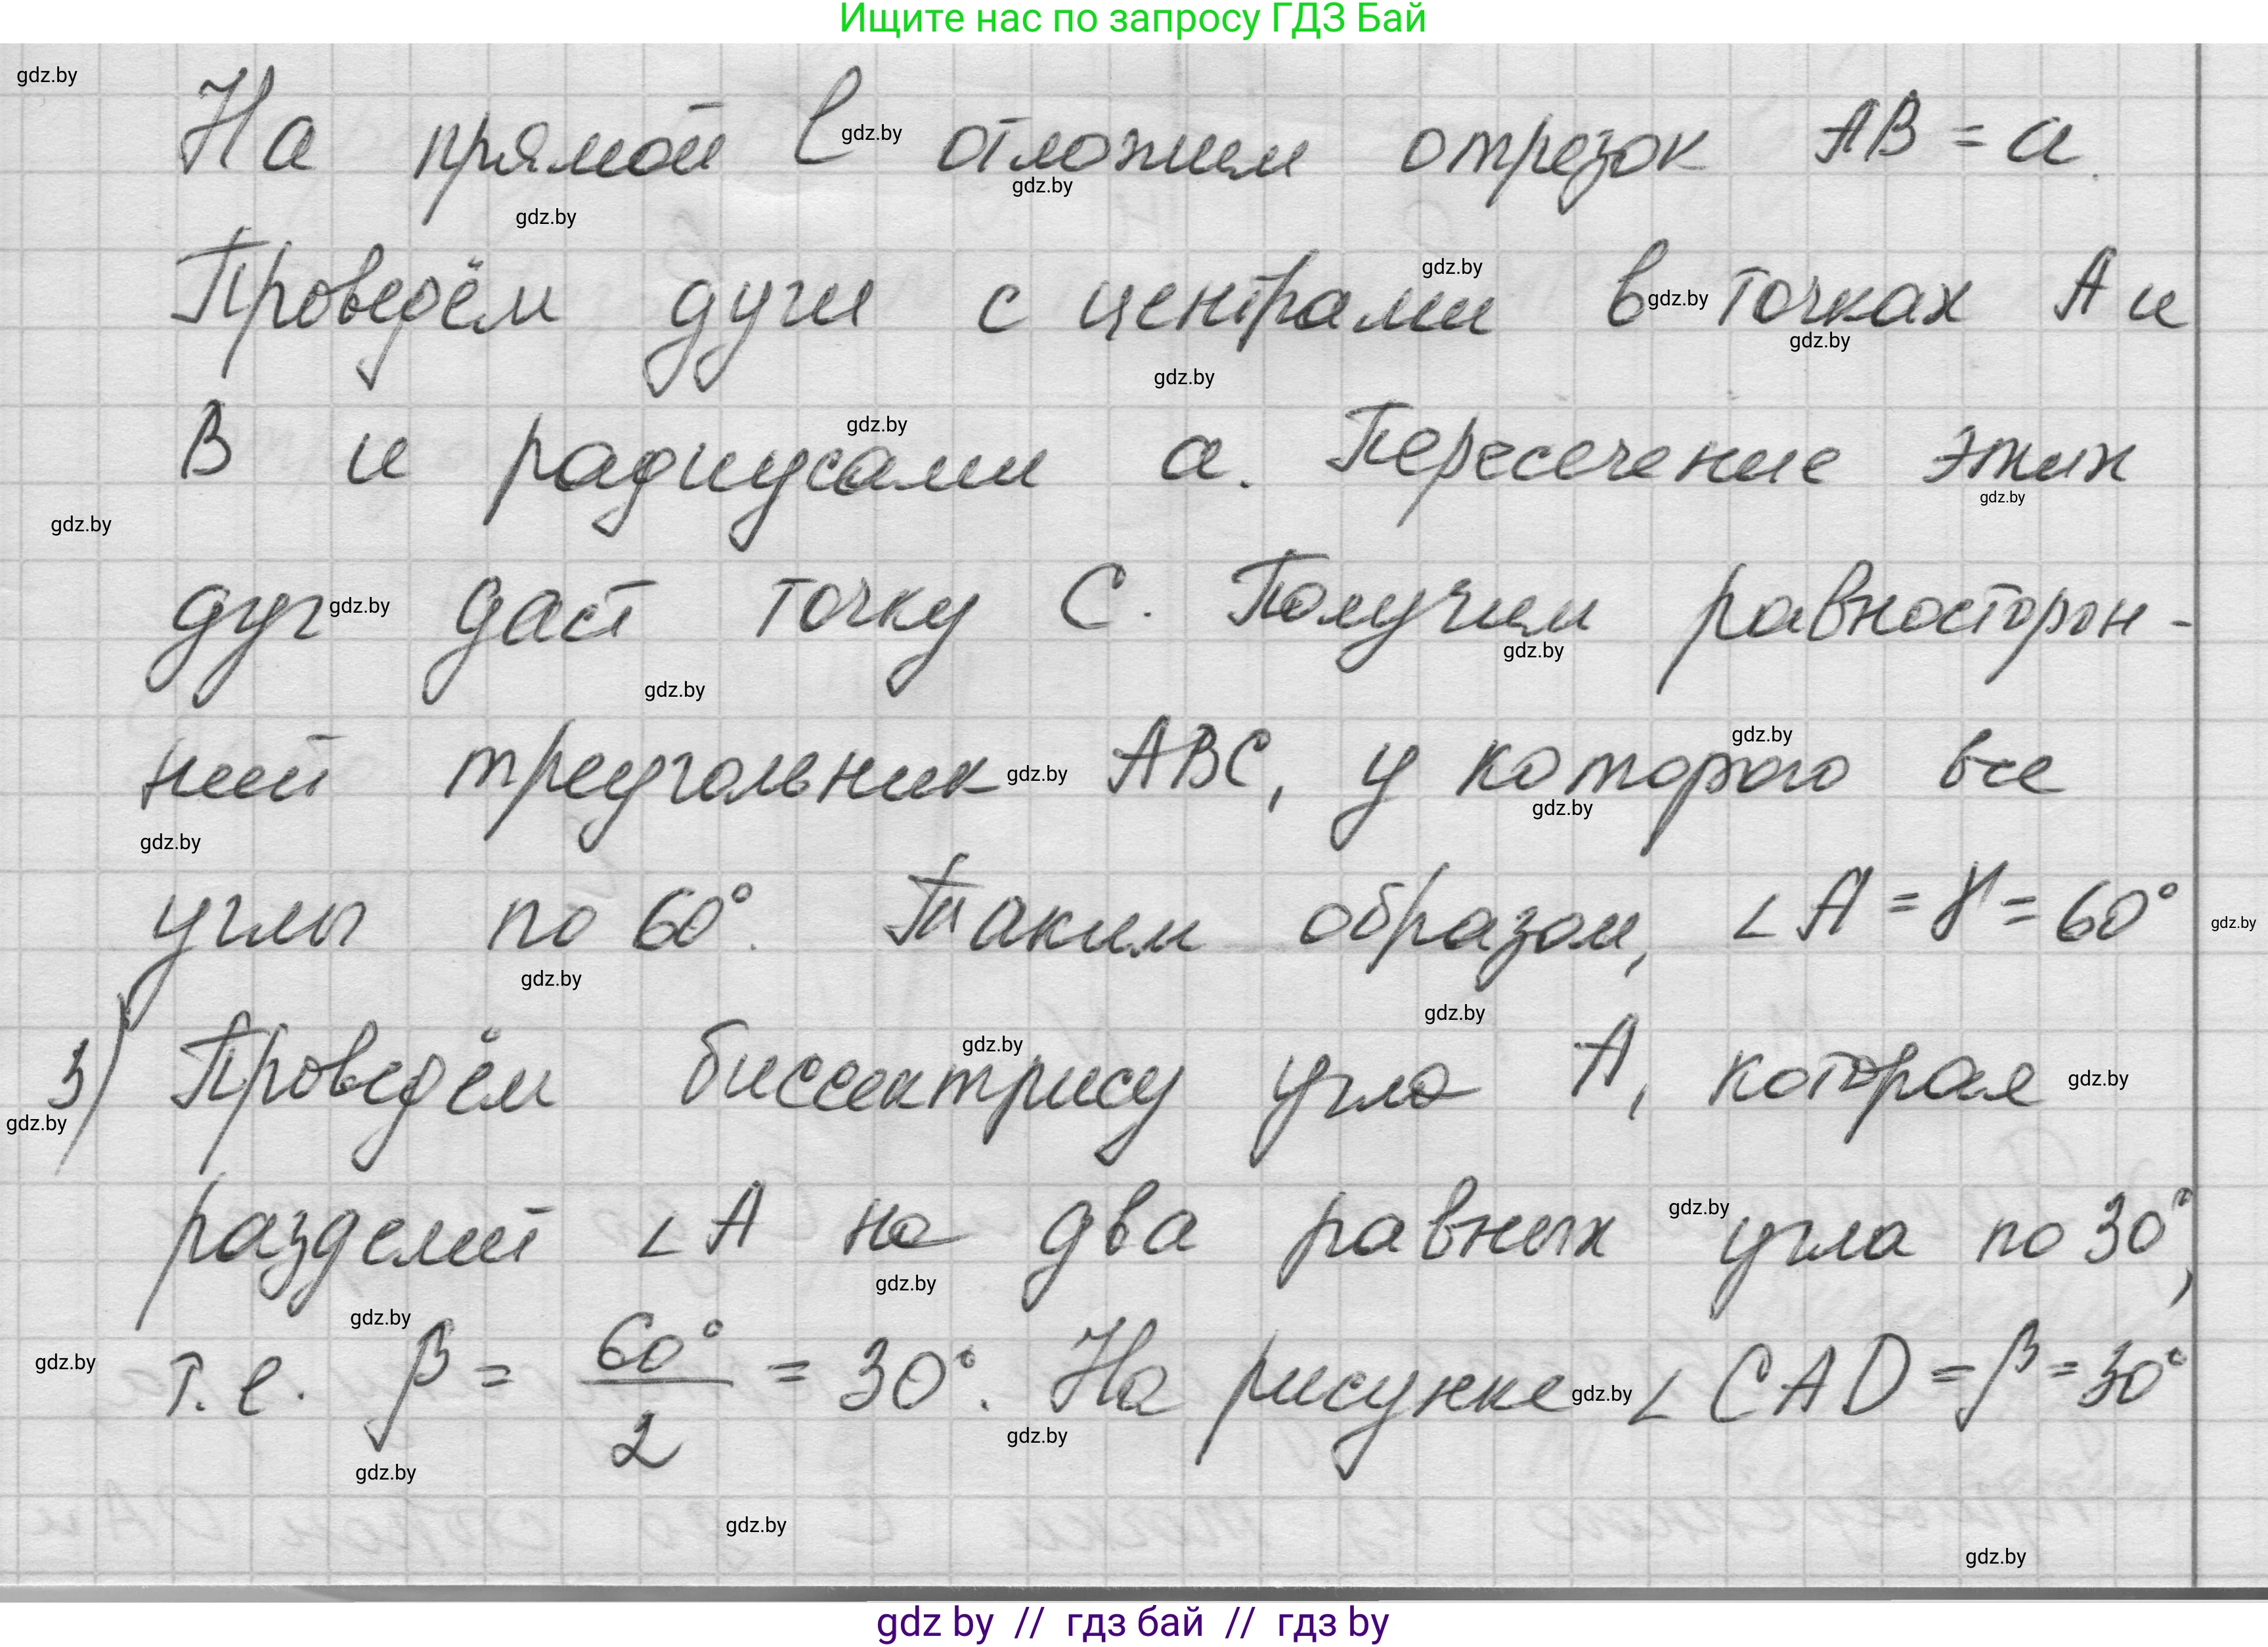 Ищите нас по запросу ГДЗ Бай
gdz.by
На прямой l отложим отрезок AB = a.
gdz.by
gdz.by
gdz.by
Проведём дуги с центрами в точках A и
gdz.by
gdz.by
gdz.by
gdz.by
B и радиусами a. Пересечение этих
gdz.by
gdz.by
gdz.by
дуг даст точку C. Получим равносторон-
gdz.by
gdz.by
gdz.by
ний треугольник ABC, у которого все
gdz.by
gdz.by
gdz.by
gdz.by
углы по 60°. Таким образом, ∠A = γ = 60°
gdz.by
gdz.by
gdz.by
3) Проведём биссектрису угла A, которая
gdz.by
gdz.by
gdz.by
разделит ∠A на два равных угла по 30°,
gdz.by
gdz.by
gdz.by
т.е. β = 60°/2 = 30°. На рисунке ∠CAD = β = 30°
gdz.by
gdz.by
gdz.by
gdz.by
gdz.by
gdz.by
gdz by // гдз бай // гдз by